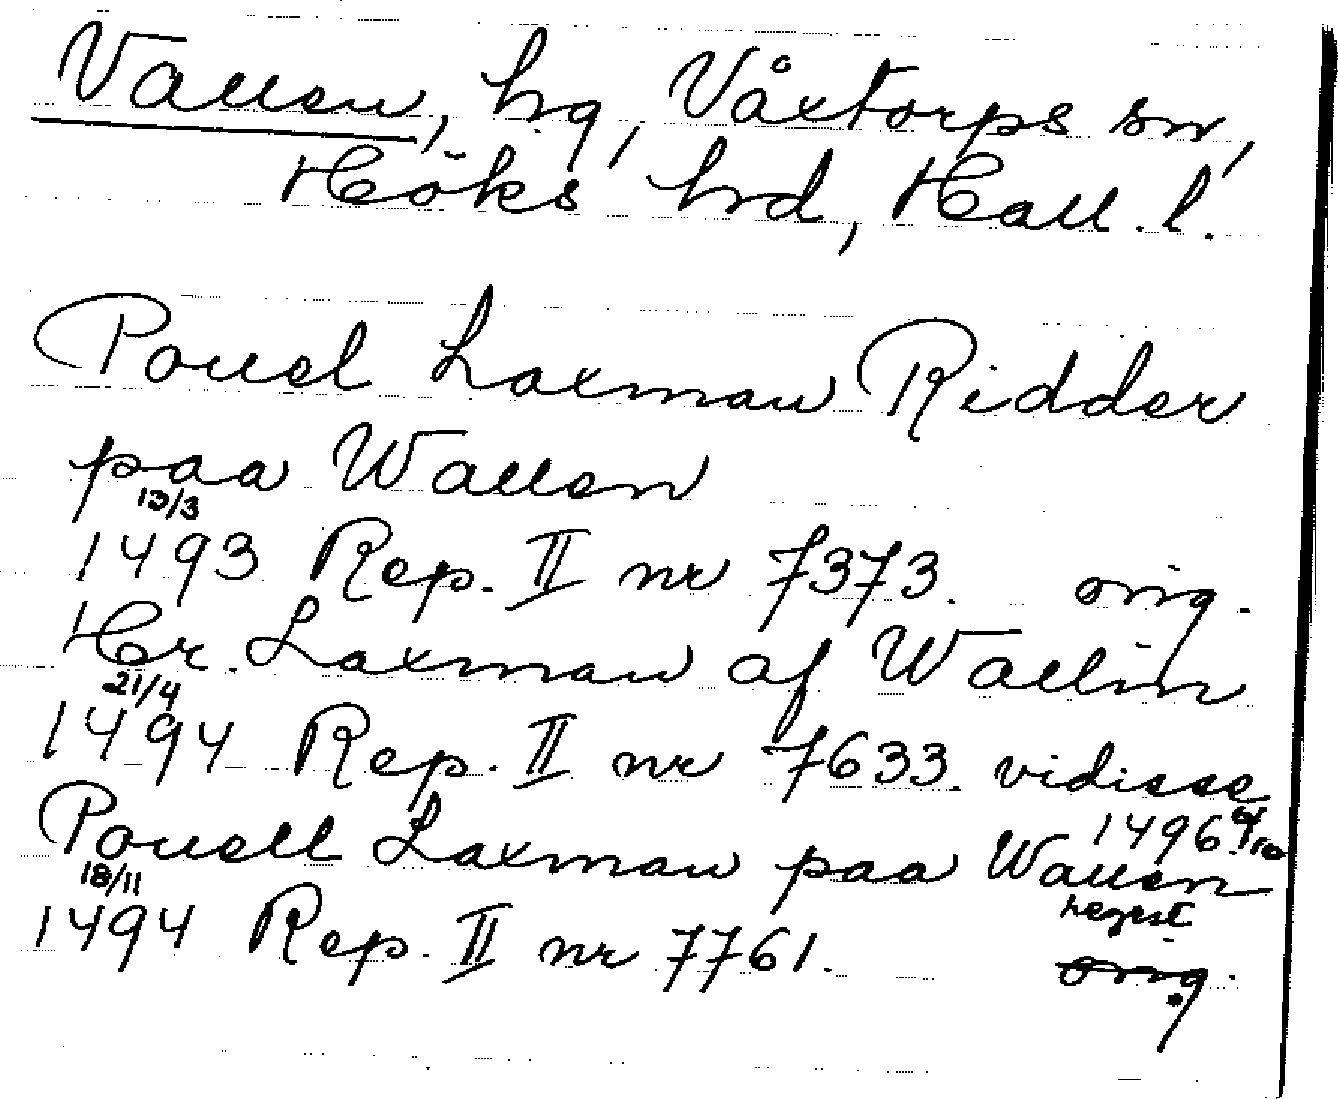 Vallen, hg, Våxtorps sn,
Höks hrd, Hall.l.
Pouel Laxman Ridder
paa Wallen
13/3
1493 Rep. II nr 7373. orig.
Hr. Laxman af Wallin
21/4
1494 Rep. II nr 7633. vidisse
1496
Pouell Laxman paa Wallen
18/11
regest
1494 Rep. II nr 7761. orig.